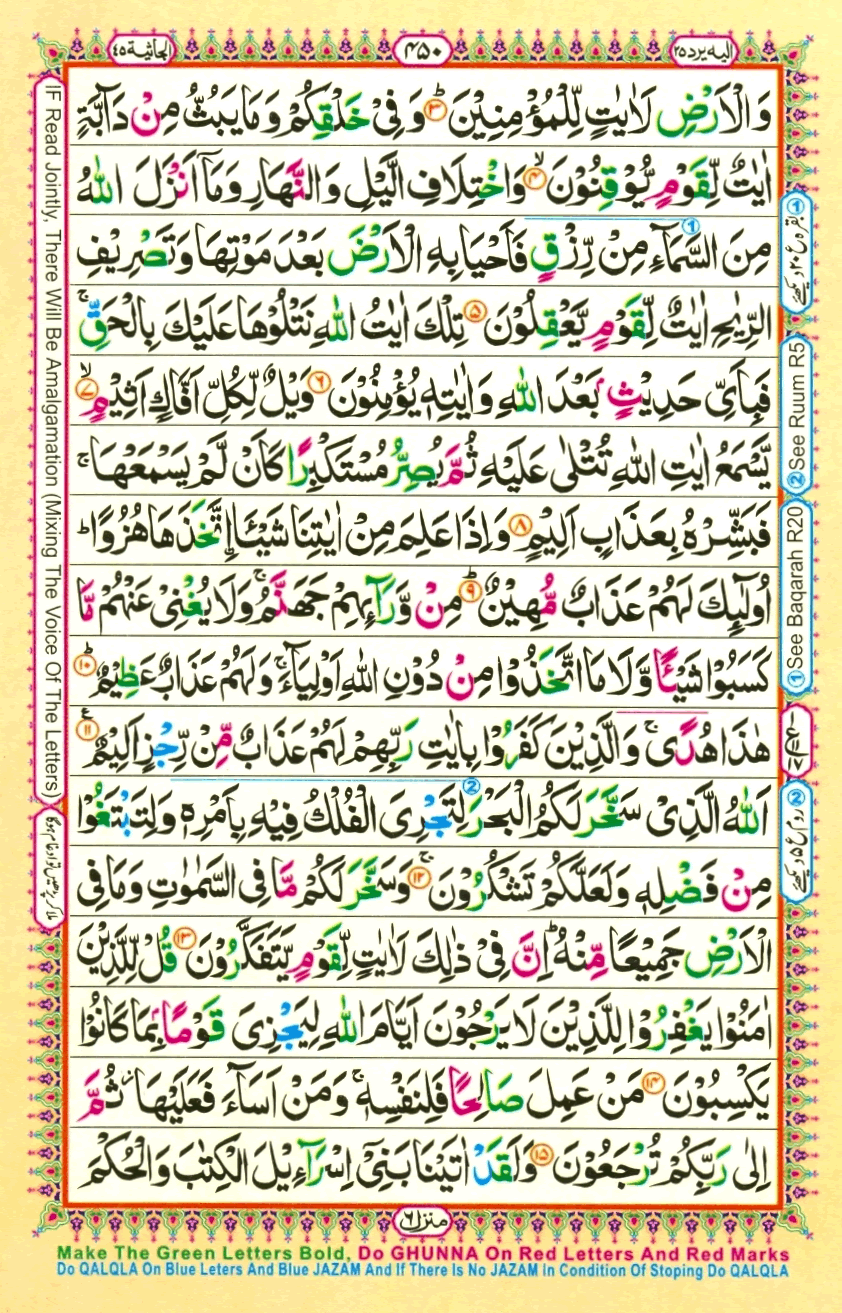 الجاثية ٤٥
٤٥٠
اليه يرد ٢٥
وَالْاَرْضِ لَاٰيٰتٍ لِّلْمُؤْمِنِيْنَ ؕ﴿۳﴾ وَفِيْ خَلْقِكُمْ وَمَا يَبُثُّ مِنْ دَآبَّةٍ
اٰيٰتٌ لِّقَوْمٍ يُّوْقِنُوْنَ ۙ﴿۴﴾ وَاخْتِلَافِ الَّيْلِ وَالنَّهَارِ وَمَاۤ اَنْزَلَ اللّٰهُ
مِنَ السَّمَآءِ مِنْ رِّزْقٍ فَاَحْيَا بِهِ الْاَرْضَ بَعْدَ مَوْتِهَا وَتَصْرِيْفِ
الرِّيٰحِ اٰيٰتٌ لِّقَوْمٍ يَّعْقِلُوْنَ ﴿۵﴾ تِلْكَ اٰيٰتُ اللّٰهِ نَتْلُوْهَا عَلَيْكَ بِالْحَقِّ ۚ
فَبِاَيِّ حَدِيْثٍۭ بَعْدَ اللّٰهِ وَاٰيٰتِهٖ يُؤْمِنُوْنَ ﴿۶﴾ وَيْلٌ لِّكُلِّ اَفَّاكٍ اَثِيْمٍ ۙ﴿۷﴾
يَّسْمَعُ اٰيٰتِ اللّٰهِ تُتْلٰى عَلَيْهِ ثُمَّ يُصِرُّ مُسْتَكْبِرًا كَاَنْ لَّمْ يَسْمَعْهَا ۚ
فَبَشِّرْهُ بِعَذَابٍ اَلِيْمٍ ﴿۸﴾ وَاِذَا عَلِمَ مِنْ اٰيٰتِنَا شَيْـًٔا اِۨتَّخَذَهَا هُزُوًا ؕ
اُولٰٓئِكَ لَهُمْ عَذَابٌ مُّهِيْنٌ ؕ﴿۹﴾ مِنْ وَّرَآئِهِمْ جَهَنَّمُ ۚ وَلَا يُغْنِيْ عَنْهُمْ مَّا
كَسَبُوْا شَيْـًٔا وَّلَا مَا اتَّخَذُوْا مِنْ دُوْنِ اللّٰهِ اَوْلِيَآءَ ۚ وَلَهُمْ عَذَابٌ عَظِيْمٌ ؕ﴿۱۰﴾
هٰذَا هُدًى ۚ وَالَّذِيْنَ كَفَرُوْا بِاٰيٰتِ رَبِّهِمْ لَهُمْ عَذَابٌ مِّنْ رِّجْزٍ اَلِيْمٌ ﴿۱۱﴾ ع
اَللّٰهُ الَّذِيْ سَخَّرَ لَكُمُ الْبَحْرَ لِتَجْرِيَ الْفُلْكُ فِيْهِ بِاَمْرِهٖ وَلِتَبْتَغُوْا
مِنْ فَضْلِهٖ وَلَعَلَّكُمْ تَشْكُرُوْنَ ۚ﴿۱۲﴾ وَسَخَّرَ لَكُمْ مَّا فِي السَّمٰوٰتِ وَمَا فِي
الْاَرْضِ جَمِيْعًا مِّنْهُ ؕ اِنَّ فِيْ ذٰلِكَ لَاٰيٰتٍ لِّقَوْمٍ يَّتَفَكَّرُوْنَ ﴿۱۳﴾ قُلْ لِّلَّذِيْنَ
اٰمَنُوْا يَغْفِرُوْا لِلَّذِيْنَ لَا يَرْجُوْنَ اَيَّامَ اللّٰهِ لِيَجْزِيَ قَوْمًاۢ بِمَا كَانُوْا
يَكْسِبُوْنَ ﴿۱۴﴾ مَنْ عَمِلَ صَالِحًا فَلِنَفْسِهٖ ۚ وَمَنْ اَسَآءَ فَعَلَيْهَا ؗ ثُمَّ
اِلٰى رَبِّكُمْ تُرْجَعُوْنَ ﴿۱۵﴾ وَلَقَدْ اٰتَيْنَا بَنِيْۤ اِسْرَآءِيْلَ الْكِتٰبَ وَالْحُكْمَ
منزل ٦
IF Read Jointly, There Will Be Amalgamation (Mixing The Voice Of The Letters)
ملا کر پڑھیں تو ادغام ہوگا
① بقرہ ع ۲۰ دیکھئے
② See Ruum R5
① See Baqarah R20
② روم ع ۵ دیکھئے
Make The Green Letters Bold, Do GHUNNA On Red Letters And Red Marks
Do QALQLA On Blue Leters And Blue JAZAM And If There Is No JAZAM In Condition Of Stoping Do QALQLA